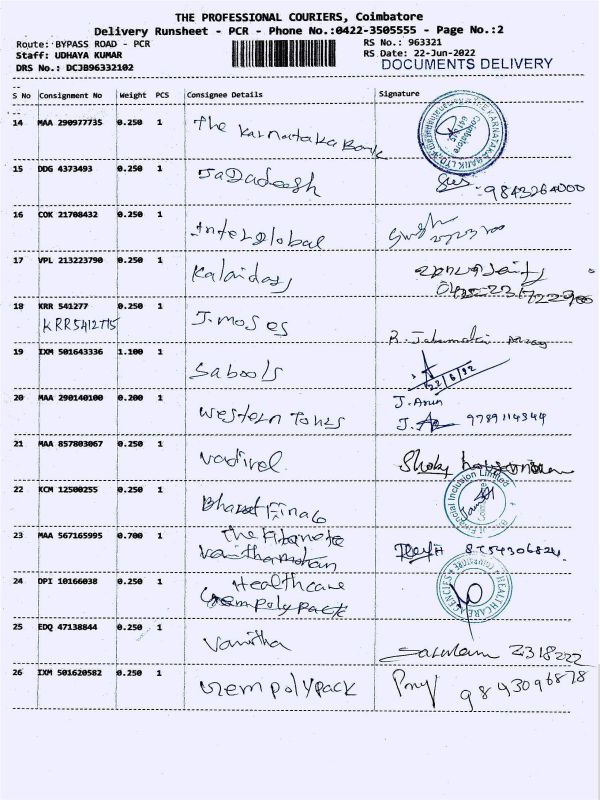 THE PROFESSIONAL COURIERS, Coimbatore
Delivery Runsheet - PCR - Phone No.:0422-3505555 - Page No.:2
Route: BYPASS ROAD - PCR RS No.: 963321
Staff: UDHAYA KUMAR RS Date: 22-Jun-2022
DRS No.: DCJB96332102 DOCUMENTS DELIVERY
S No Consignment No Weight PCS Consignee Details Signature
14 MAA 290977735 0.250 1 The Karnataka Bank
15 DDG 4373493 0.250 1 Jadadeesh 9843264000
16 COK 21708432 0.250 1 Interglobal
17 VPL 213223790 0.250 1 Kalaidass
18 KRR 541277 0.250 1 J. moses
KRR5412775
19 IXM 501643336 1.100 1 Sabools 22/6/22
20 MAA 290140100 0.200 1 Western Tours J. Arun
9789114344
21 MAA 857803067 0.250 1 Vadivel
22 KCM 12500255 0.250 1 Bharat Financ
Financial Inclusion Limited
23 MAA 567165995 0.700 1 The
Vanithamohan
24 DPI 10166038 0.250 1 Healthcare
Gempolypack
HEALTHCARE AGENCIES
25 EDQ 47138844 0.250 1 Vanitha 2318222
26 IXM 501620582 0.250 1 Gem polypack 9843096878